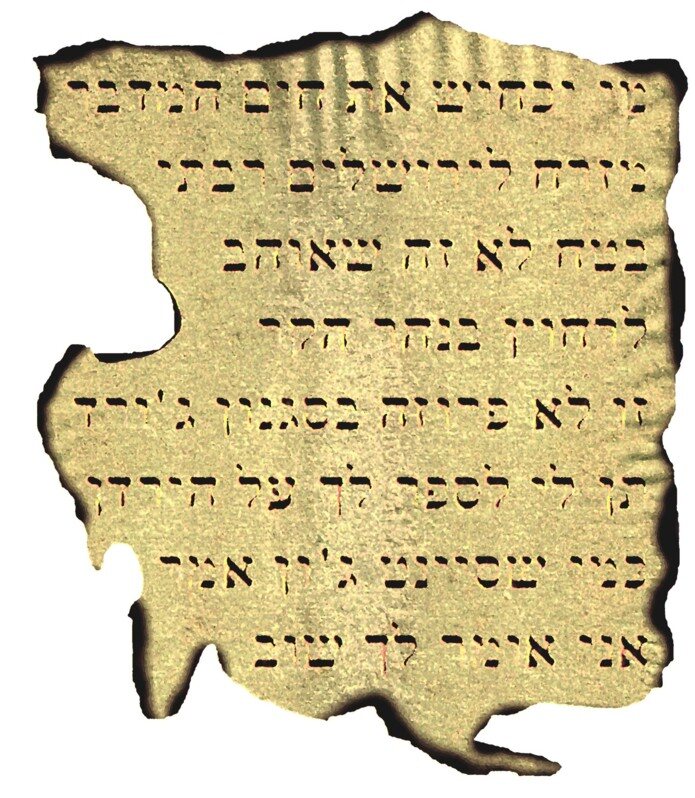 מי יכחיש את המדבר
מזרח לירושלים רבתי
בטח לא זה שאוהב
לרחוץ בנהר
זו לא פרוזה בסגנון
תן לי לספר לך על הירדן
כמו שסיינט ג'ון אמר
אני אומר לך שוב